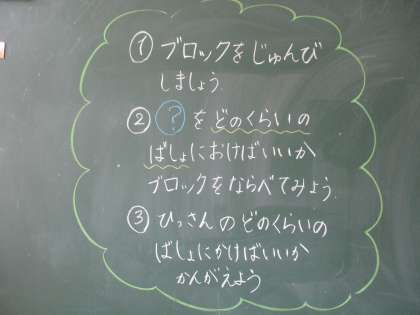 ① ブロックをじゅんび
しましょう.
② ? をどのくらいの
ばしょにおけばいいか
ブロックをならべてみよう.
③ ひっさんのどのくらいの
ばしょにかけばいいか
かんがえよう